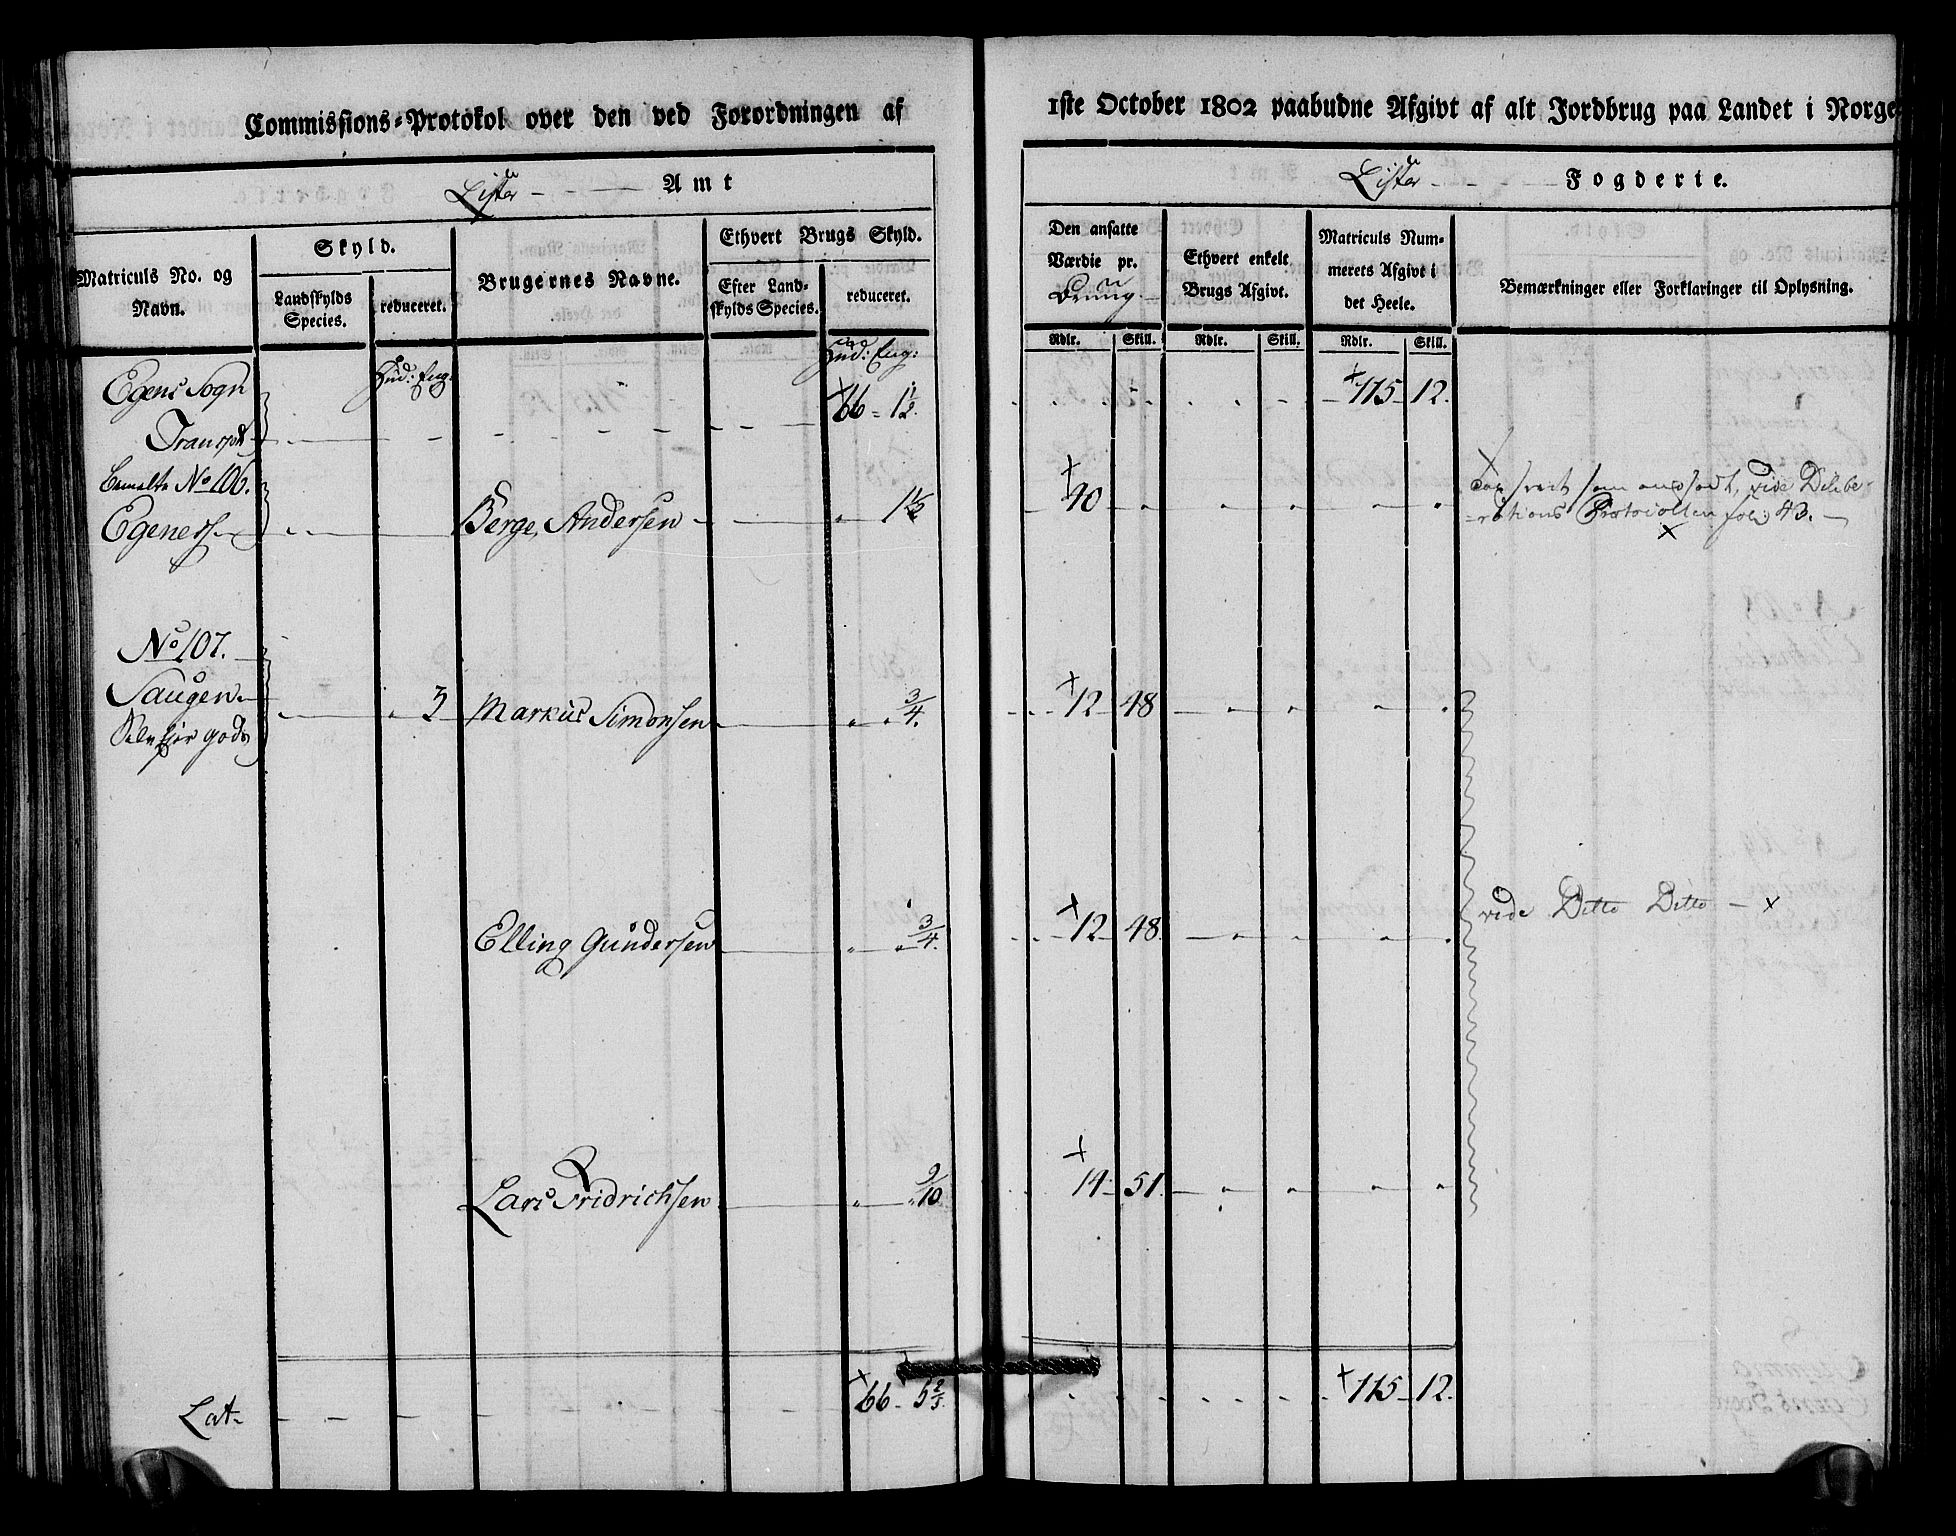 Commissions-Protokol over den ved Forordningen af
1ste October 1802 paabudne Afgivt af alt Jordbrug paa Landet i Norge
Lister Amt
Lister Fogderie.
Matriculs No. og Navn.
Skyld.
Landskylds Species.
reduceret.
Brugernes Navne.
Ethvert Brugs Skyld.
Efter Land-
skylds Species.
reduceret.
Den ansatte
Værdie pr.
Ethvert enkelt
Brugs Afgivt.
Matriculs Num-
merets Afgivt i
det Heele.
Bemærkninger eller Forklaringer til Oplysning.
Rdlr. Skill. Rdlr. Skill. Rdlr. Skill.
Hud: Eng:
Hud: Eng:
Egens Sogn
Transport 66 - 1½. 115 - 12.
No 106.
Berge Andersen 1½ 40
som anførdt, vide Delibe-
rations Protocollen fol: 43.
No 107.
Saugen
3 Markus Simonsen 3/4. 12 48
Selv Eier gods
Elling Gundersen 3/4. 12 48.
vide Ditto Ditto
Lars Fridrichsen 9/10. 14 51.
Lat. 66 - 5 2/5. 115 - 12.